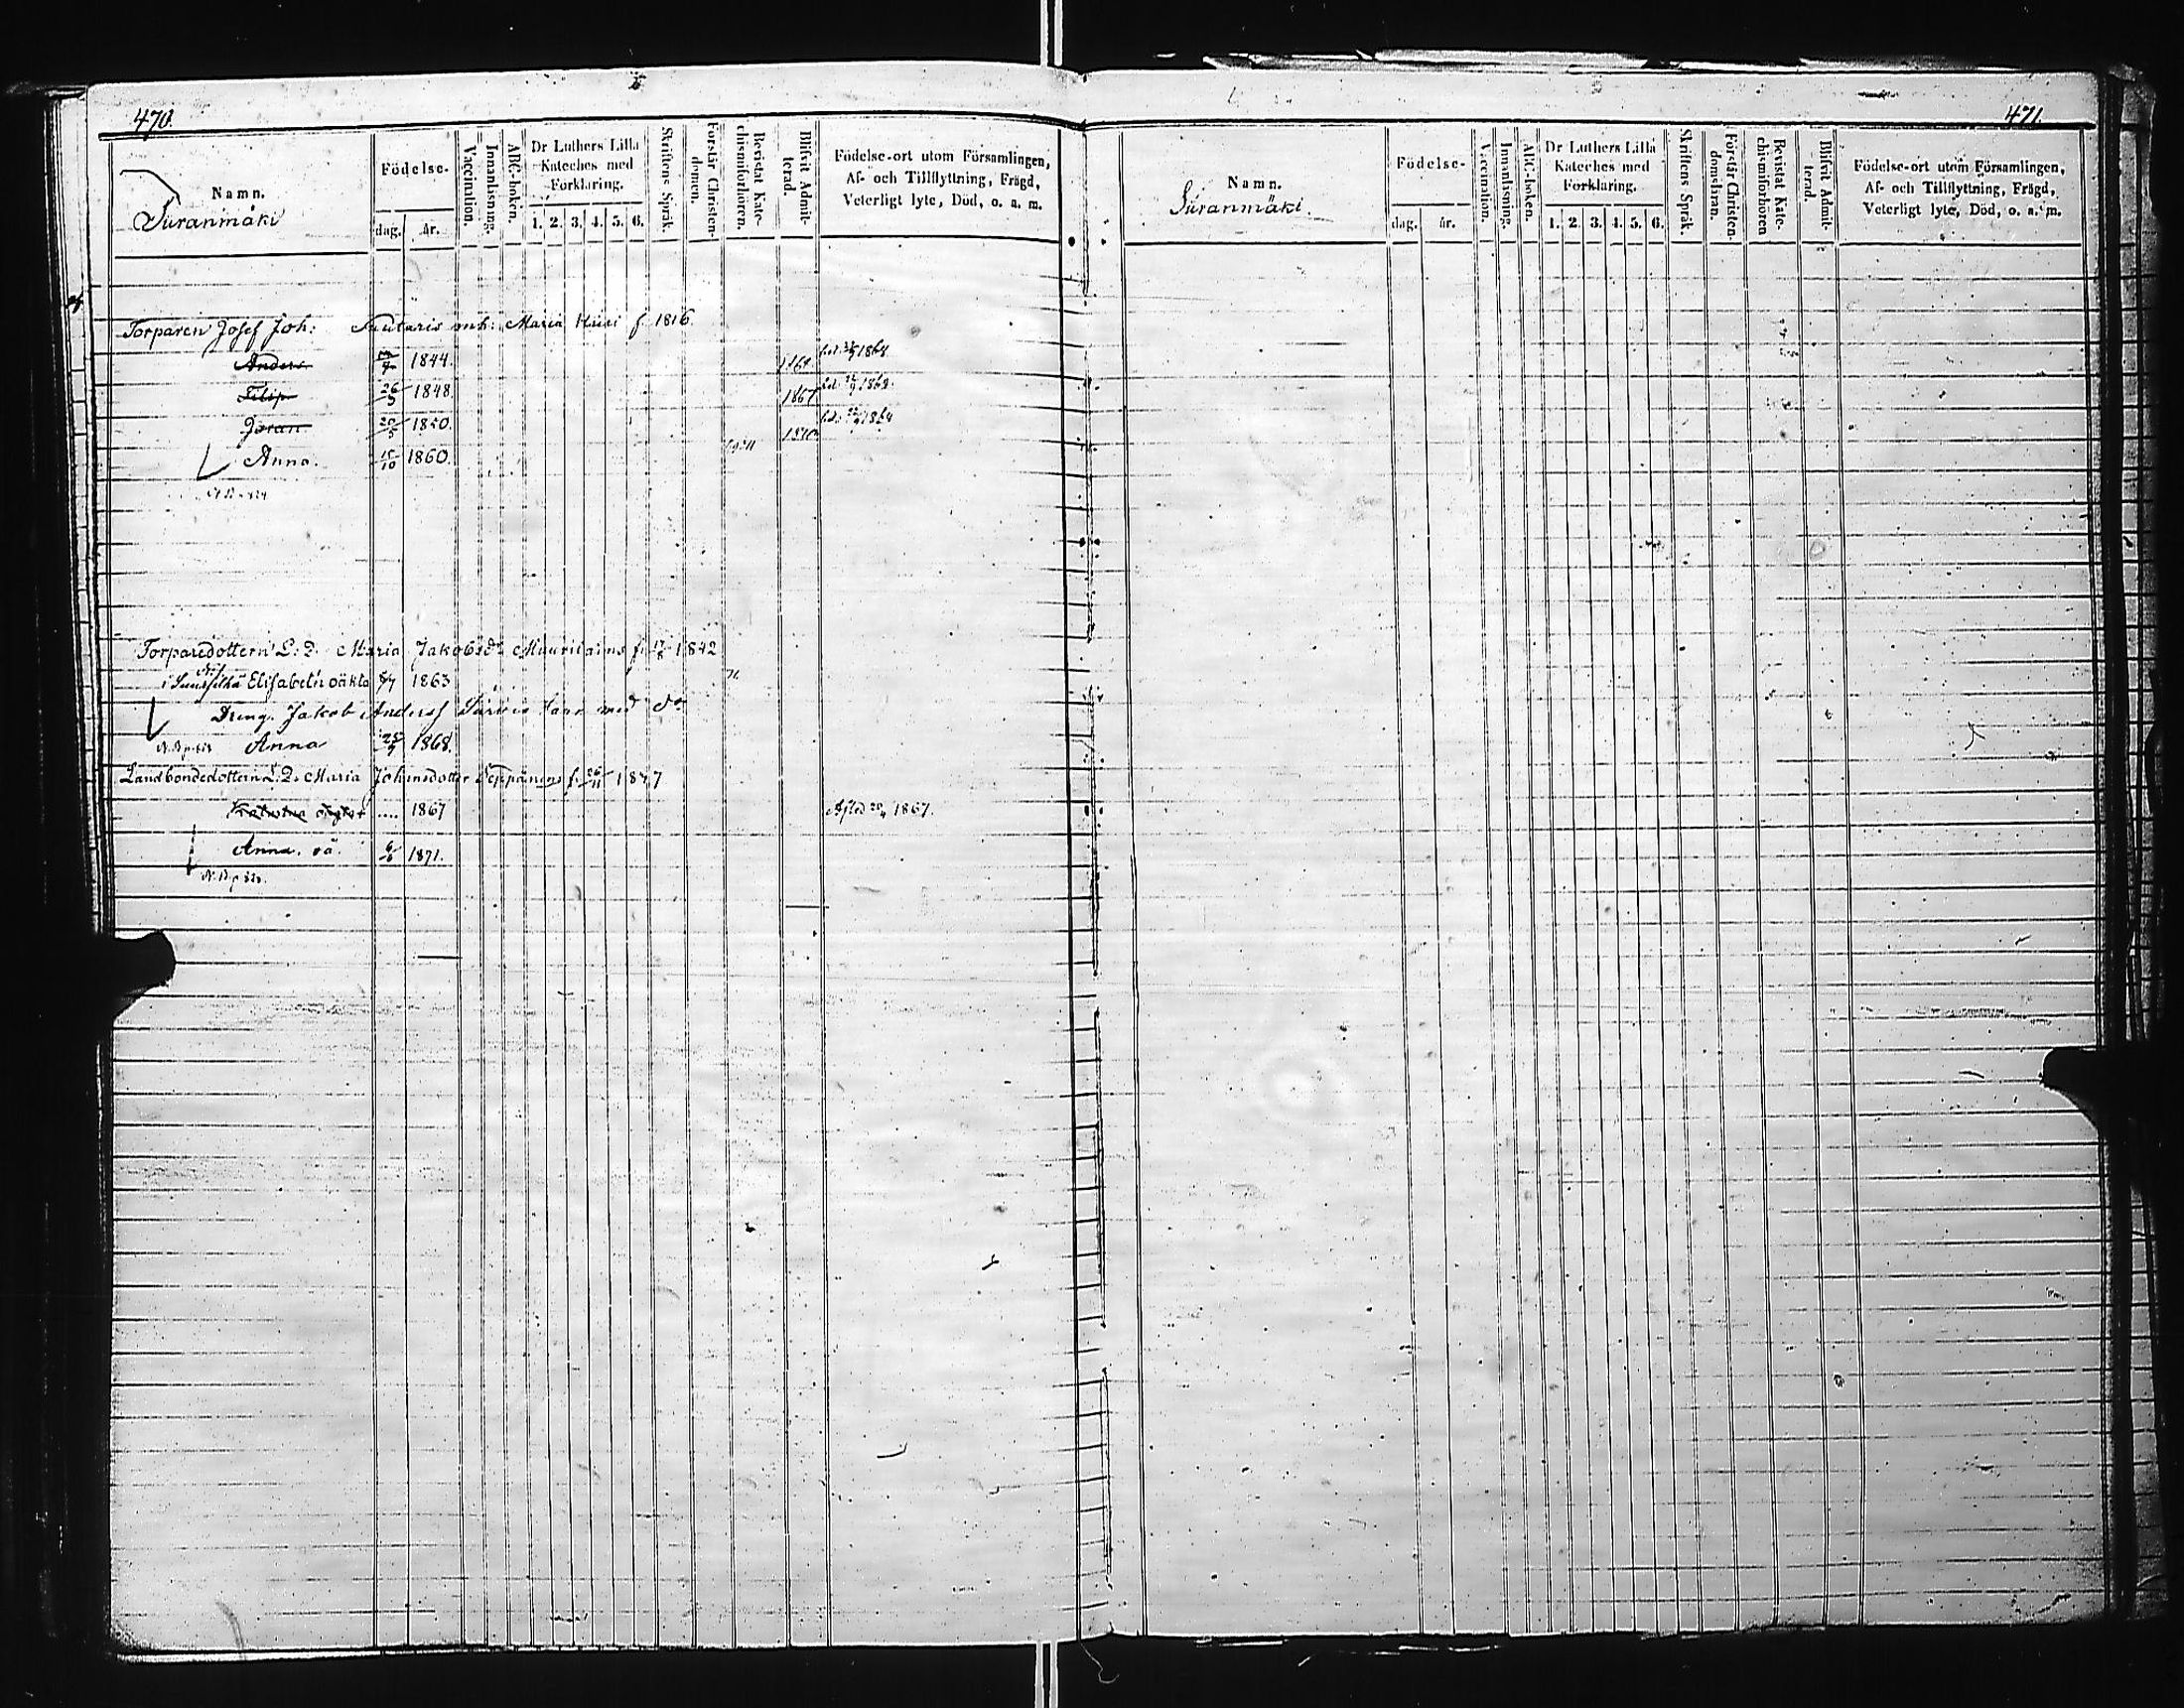 470.
Namn.
Födelse-
dag. år.
Vaccination.
Innanläsning.
ABC-boken.
Dr Luthers Lilla
Kateches med
Förklaring.
1. 2. 3. 4. 5. 6.
Skriftens Språk.
Förstår Christen-
domen.
Bevistat Kate-
chismiförhören.
Blifvit Admit-
terad.
Födelse-ort utom Församlingen,
Af- och Tillflyttning, Frägd,
Veterligt lyte, Död, o. a. m.
Suranmäki
Torparen Josef Joh: enk: Maria f. 1816
Anders 1844. 1868
Filip 26/5 1848. 1867 1868
Göran 20/5 1850. 1870
Anna. 1860.
Torparedottern L. D. Maria Jakobsdr f. 1842
Elisabeth oäkta 1863
Dreng. Jakob Andersf med dr
Anna 25/7 1868.
Landbondedottern L. D. Maria Johansdotter Seppänens f. 26/11 1847
Katarina 1867 Afled 1867.
Anna. oä. 6/6 1871.
471.
Namn.
Suranmäki.
Födelse-
dag. år.
Vaccination.
Innanläsning.
ABC-boken.
Dr Luthers Lilla
Kateches med
Förklaring.
1. 2. 3. 4. 5. 6.
Skriftens Språk.
Förstår Christen-
domsläran.
Bevistat Kate-
chismiförhören
Blifvit Admit-
terad.
Födelse-ort utom Församlingen,
Af- och Tillflyttning, Frägd,
Veterligt lyte, Död, o. a. m.